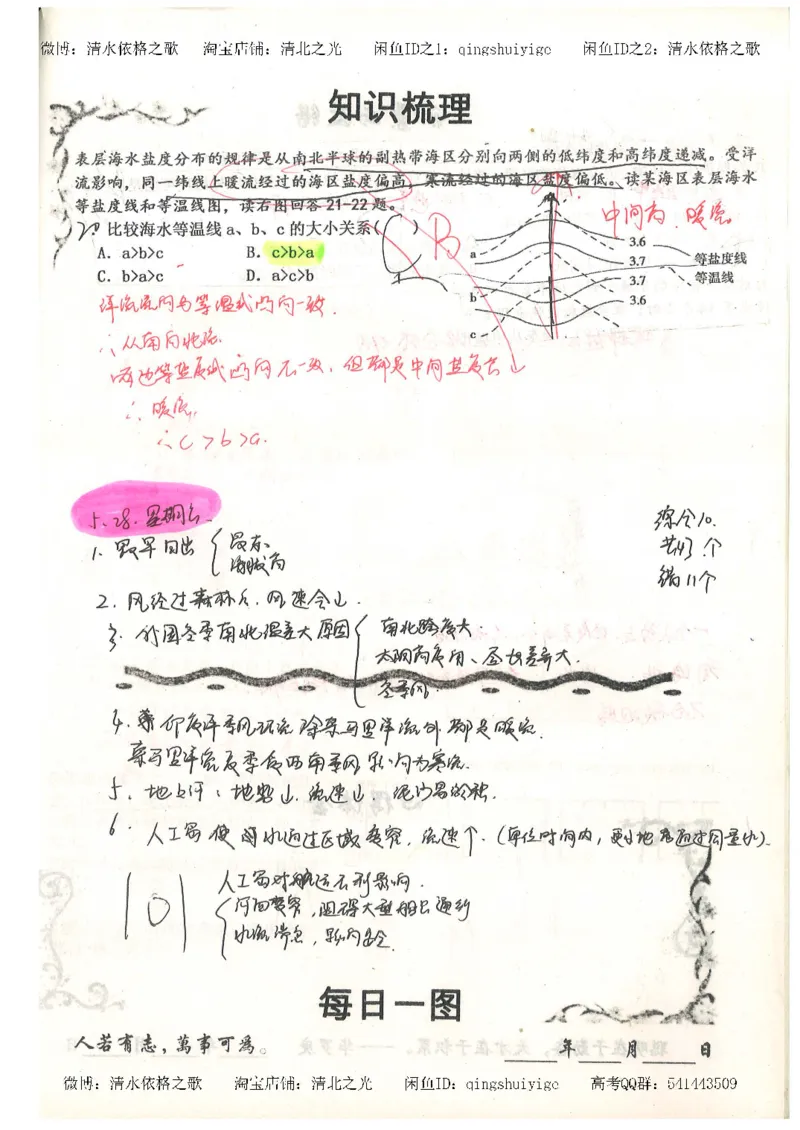 微博：清水依格之歌 淘宝店铺：清北之光 闲鱼ID之1：qingshuiyige 闲鱼ID之2：清水依格之歌
知识梳理
表层海水盐度分布的规律是从南北半球的副热带海区分别向两侧的低纬度和高纬度递减。受洋
流影响，同一纬线上暖流经过的海区盐度偏高，寒流经过的海区盐度偏低。读某海区表层海水
等盐度线和等温线图，读右图回答21-22题。
比较海水等温线a、b、c的大小关系( ) B
A. a>b>c B. c>b>a
C. b>a>c D. a>c>b
中间高，暖流
a
b
c
3.6
3.7
3.7
3.6
等盐度线
等温线
洋流流向与等温线凸向一致.
∴从南向北流.
两边等盐度线凸向不一致，但都是中间盐度大
∴暖流,
∴c>b>a.
5.28.星期
综合10.
共43个
错11个
1. 最早日出
海拔高
2. 风经过森林后，风速会小.
3. 我国冬季南北温差大原因
南北跨度大.
太阳高度角、昼长差异大.
冬季风.
4. 北印度洋季风环流 除索马里洋流外 都是暖流.
索马里洋流夏季受西南季风影响为寒流.
5. 地上河：地势小，流速小，泥沙易淤积.
6. 人工岛使得水通过区域变窄，流速↑.
人工岛对航运不利影响.
河面变窄，阻碍大型船只通行
水流湍急，影响安全.
每日一图
人若有志，萬事可為。
年 月 日
微博：清水依格之歌 淘宝店铺：清北之光 闲鱼ID：qingshuiyige 高考QQ群：541443509